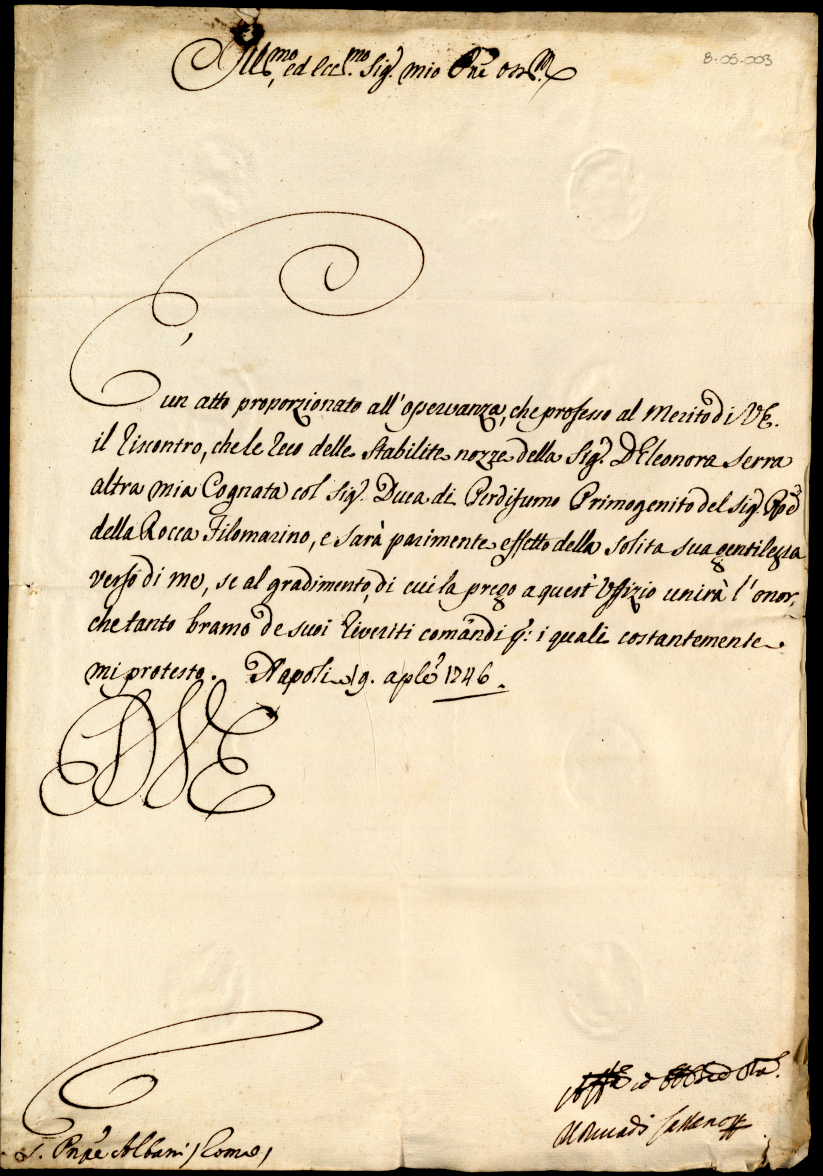 8-05-003
Ill.mo, ed Ecc.mo Sig.r mio P.ne oss.mo
È un atto proporzionato all'osservanza, che professo al Merito di VE.
il riscontro, che le reco delle stabilite nozze della Sig.ra D Eleonora Serra
altra mia Cognata col Sig.r Duca di Perdifumo Primogenito del Sig.r
della Rocca Filomarino, e sarà parimente effetto della solita sua gentilezza
verso di me, se al gradimento, di cui la prego a quest'Uffizio unirà l'onor,
che tanto bramo de suoi riveriti comãndi p: i quali costantemente
mi protesto. Napoli 19. aple 1746.
DVE
S. Pnpe Albani / Roma /
ed
Il Duca di Cassano